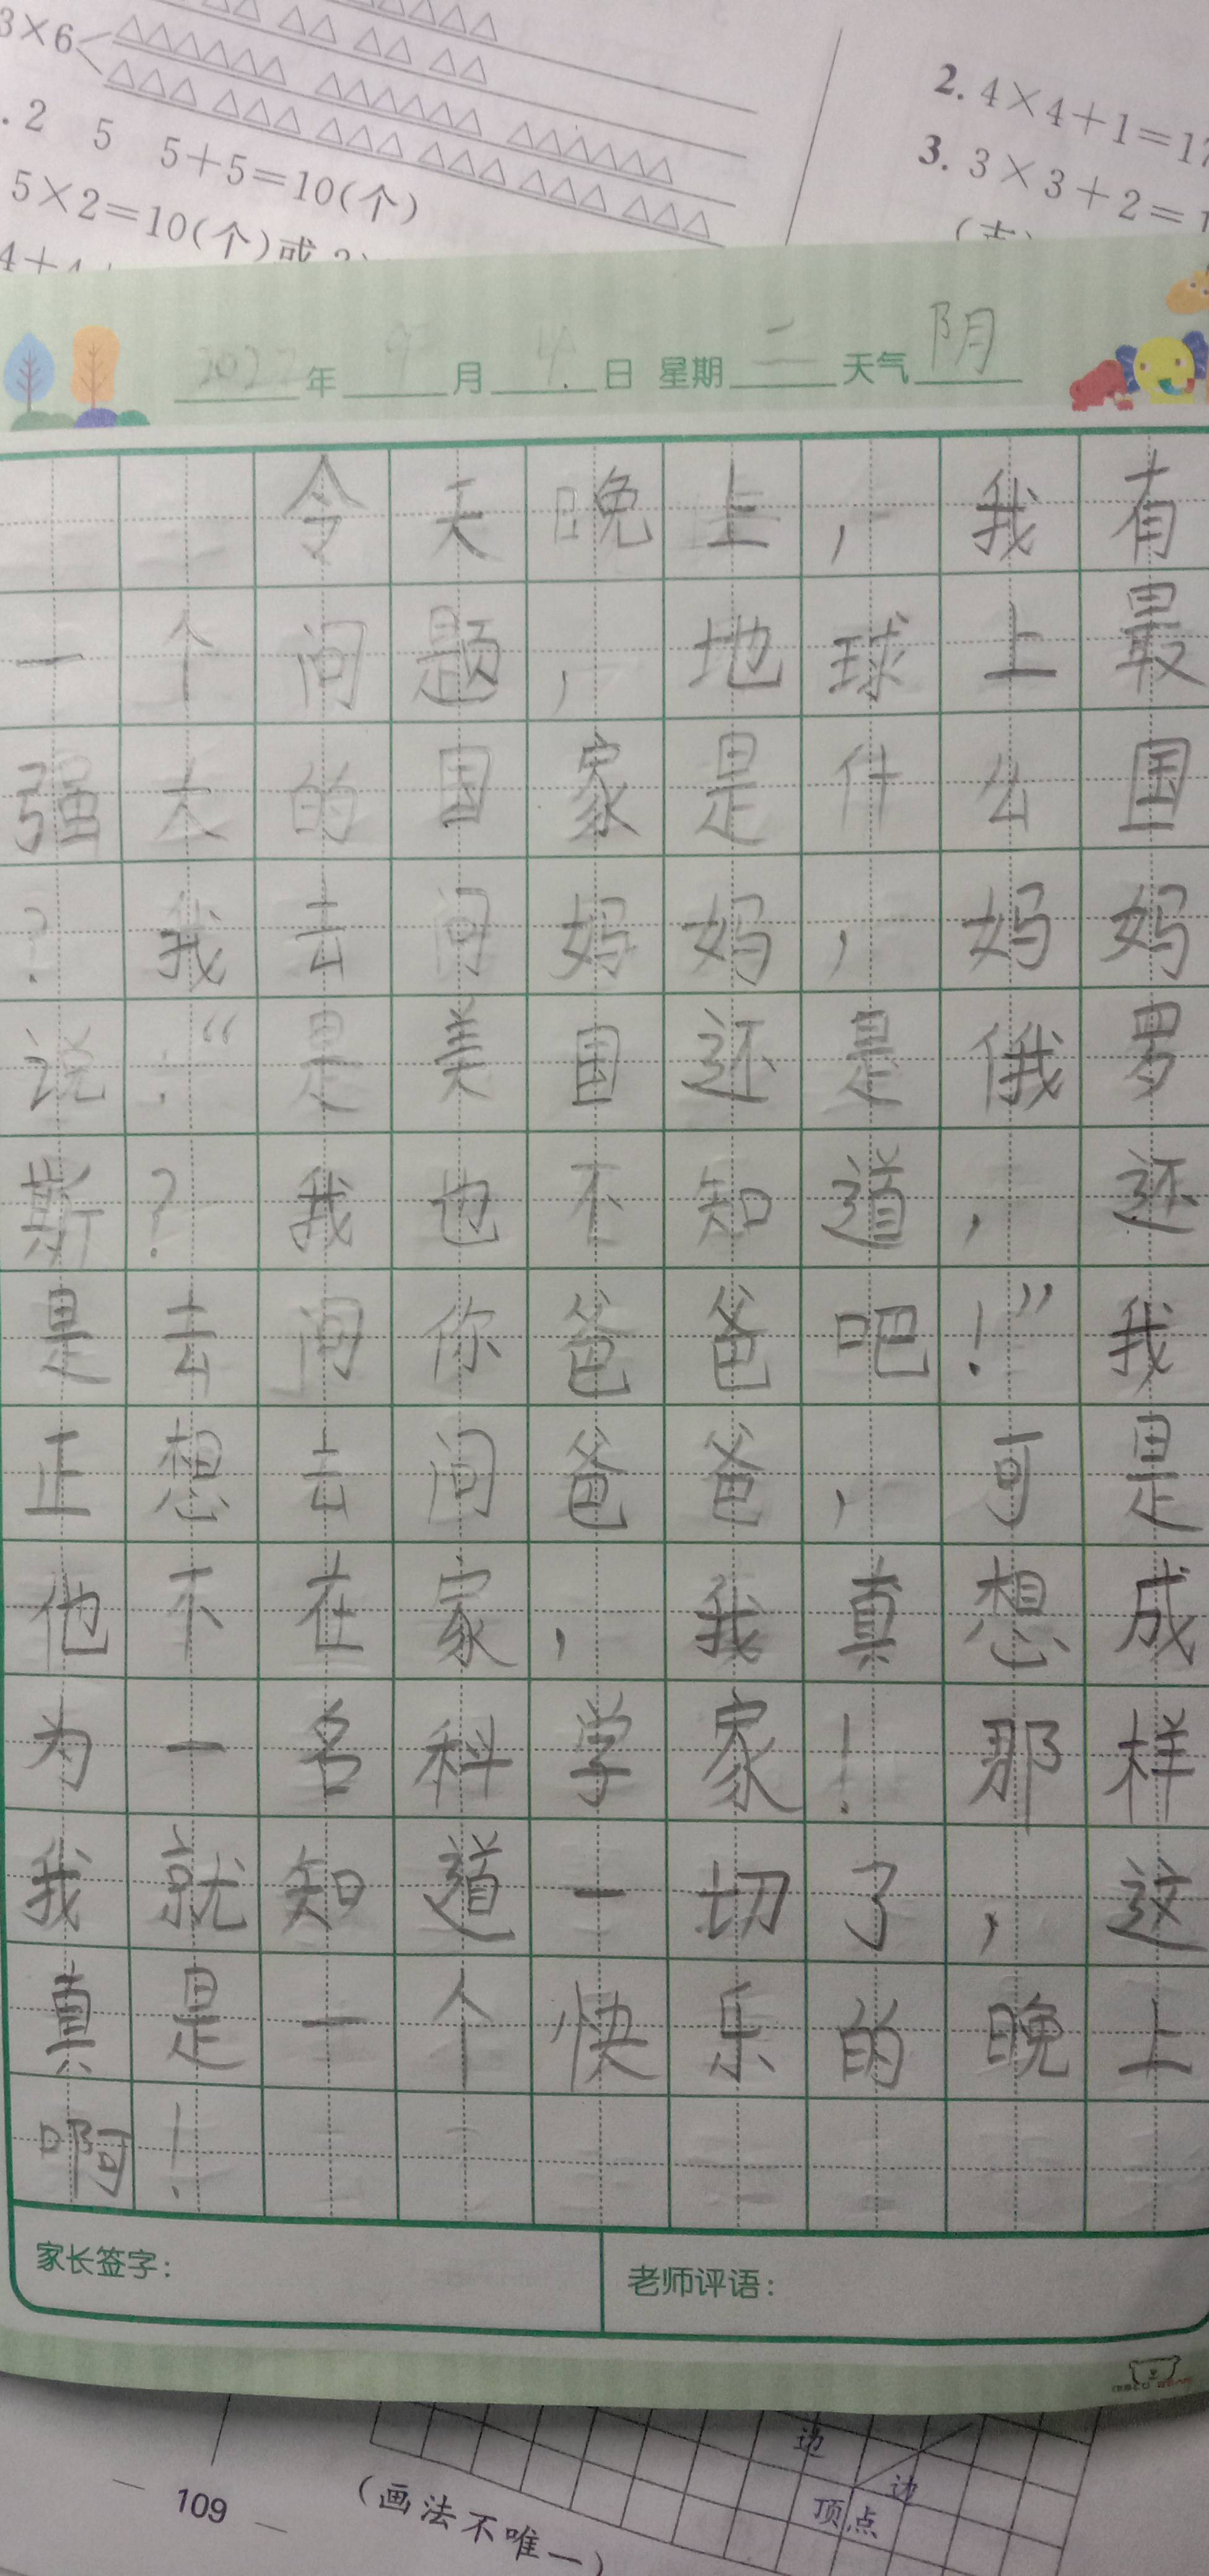 3×6
.2 5 5+5=10(个)
5×2=10(个)或
2. 4×4+1=17
3. 3×3+2=1
年 9月4日 星期二 天气阴
令天晚上，我有
一个问题，地球上最
强大的国家是什么国
？我去问妈妈，妈妈
说：“是美国还是俄罗
斯？我也不知道，还
是去问你爸爸吧！”我
正想去问爸爸，可是
他不在家，我真想成
为一名科学家！那样
我就知道一切了，这
真是一个快乐的晚上
啊！
家长签字：
老师评语：
边
边
顶点
109
(画法不唯一)